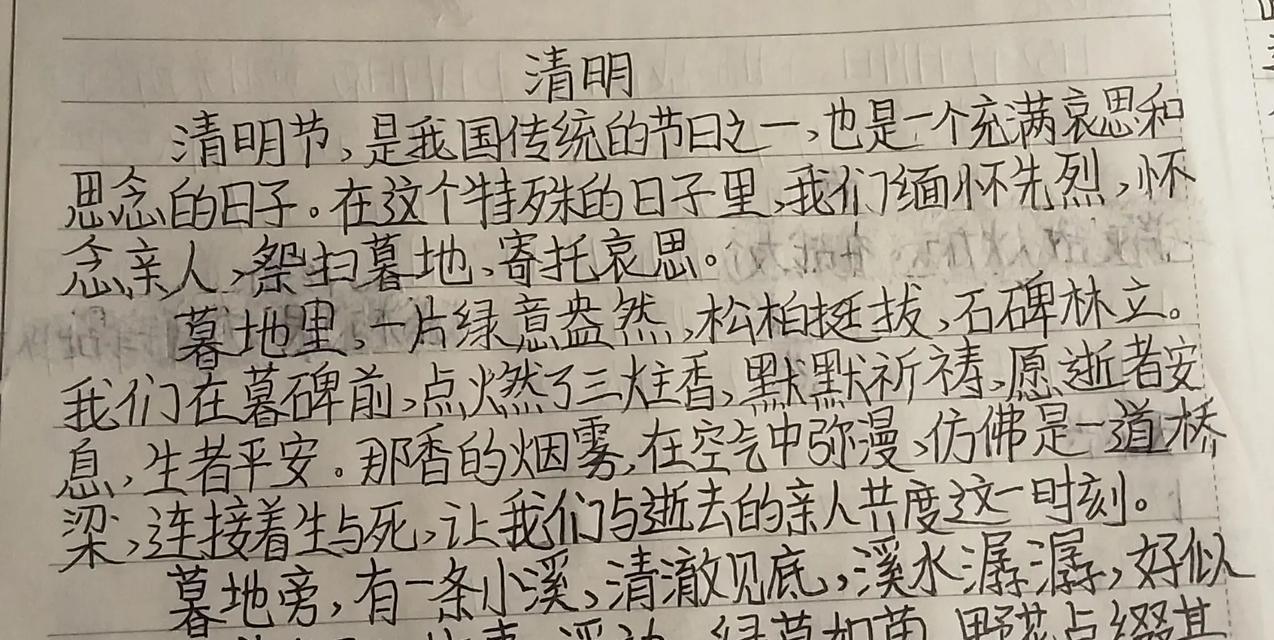 清明
清明节,是我国传统的节日之一,也是一个充满哀思和
思念的日子。在这个特殊的日子里,我们缅怀先烈,怀
念亲人,祭扫墓地,寄托哀思。
墓地里,一片绿意盎然,松柏挺拔,石碑林立。
我们在墓碑前,点燃了三炷香,默默祈祷,愿逝者安
息,生者平安。那香的烟雾,在空气中弥漫,仿佛是一道桥
梁,连接着生与死,让我们与逝去的亲人共度这一时刻。
墓地旁,有一条小溪,清澈见底,溪水潺潺,好似
溪边,绿草如茵,野花点缀其